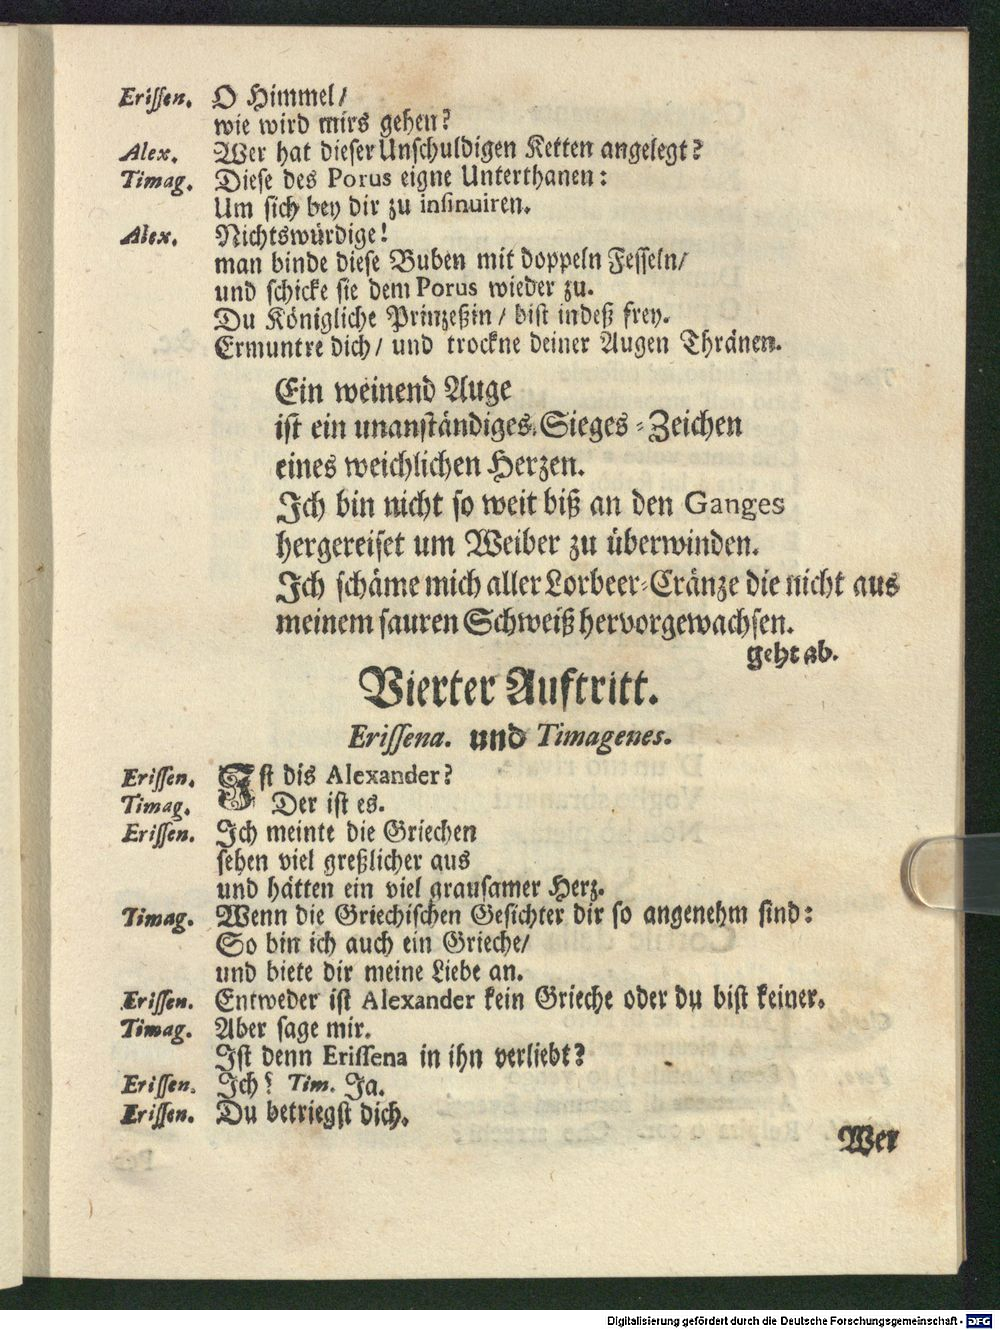 Erissen. O Himmel/
wie wird mirs gehen?
Alex. Wer hat dieser Unschuldigen Ketten angelegt?
Timag. Diese des Porus eigne Unterthanen:
Um sich bey dir zu insinuiren.
Alex. Nichtswürdige!
man binde diese Buben mit doppeln Fesseln/
und schicke sie dem Porus wieder zu.
Du Königliche Prinzeßin/ bist indeß frey.
Ermuntre dich/ und trockne deiner Augen Thränen.
Ein weinend Auge
ist ein unanständiges Sieges-Zeichen
eines weichlichen Herzen.
Ich bin nicht so weit biß an den Ganges
hergereiset um Weiber zu überwinden.
Ich schäme mich aller Lorbeer-Cränze die nicht aus
meinem sauren Schweiß hervorgewachsen.
geht ab.
Vierter Auftritt.
Erissena. und Timagenes.
Erissen. Ist dis Alexander?
Timag. Der ist es.
Erissen. Ich meinte die Griechen
sehen viel greßlicher aus
und hätten ein viel grausamer Herz.
Timag. Wenn die Griechischen Gesichter dir so angenehm sind:
So bin ich auch ein Grieche/
und biete dir meine Liebe an.
Erissen. Entweder ist Alexander kein Grieche oder du bist keiner.
Timag. Aber sage mir.
Ist denn Erissena in ihn verliebt?
Erissen. Ich? Tim. Ja.
Erissen. Du betriegst dich.
Wer
Digitalisierung gefördert durch die Deutsche Forschungsgemeinschaft - DFG